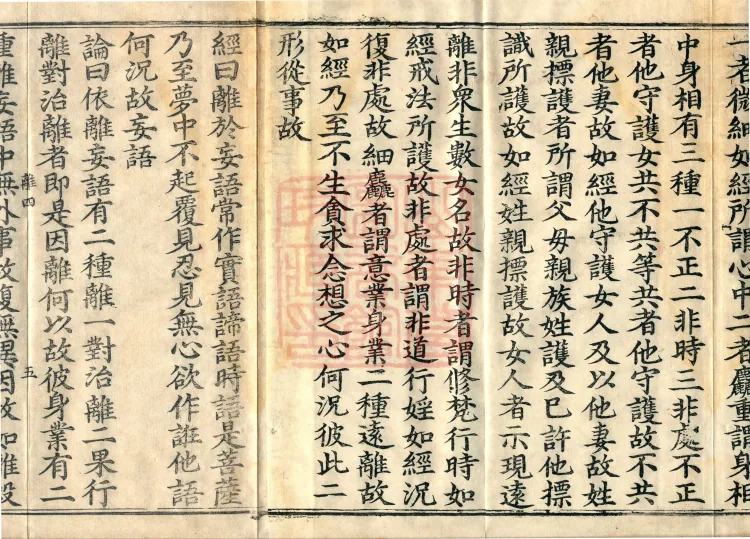 一者微細如經所謂心中二者麤重謂身相
中身相有三種一不正二非時三非處不正
者他守護女共不共等共者他守護故不共
者他妻故如經他守護女人及以他妻故姓
親摽護者所謂父母親族姓護及已許他摽
識所護故如經姓親摽護故女人者示現遠
離非衆生數女名故非時者謂修梵行時如
經戒法所護故非處者謂非道行婬如經況
復非處故細麤者謂意業身業二種遠離故
如經乃至不生貪求念想之心何況彼此二
形從事故
經曰離於妄語常作實語諦語時語是菩薩
乃至夢中不起覆見忍見無心欲作誑他語
何況故妄語
論曰依離妄語有二種離一對治離二果行
離對治離者即是因離何以故彼身業有二
離四
五
重離妄語中無外事故復無異因故如離殺